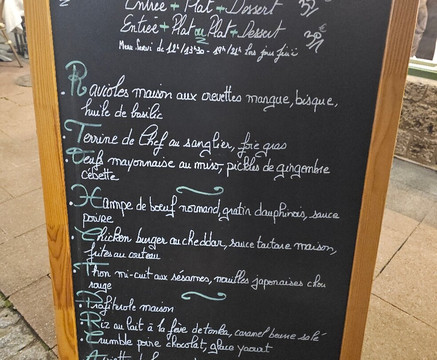 Entrée + Plat + Dessert
Entrée + Plat ou Plat + Dessert
Menu Servi de 12h/13h30 - 19h/21h
Ravioles maison aux crevettes mangue, bisque,
huile de basilic
Terrine de Chef au sanglier, foie gras
Oeufs mayonnaise au miso, pickles de gingembre
cébette
Hampe de boeuf normand, gratin dauphinois, sauce
poivre
Chicken burger au cheddar, sauce tartare maison,
frites au couteau
Thon mi-cuit aux sésames, nouilles japonaises chou
rouge
Profiterole maison
Riz au lait à la fève de tonka, caramel beurre salé
Crumble poire chocolat, glace yaourt